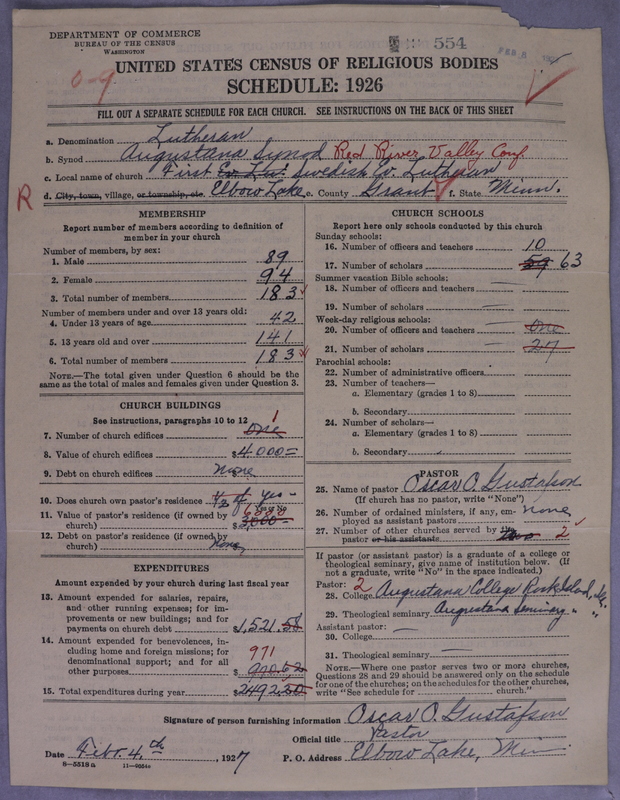 DEPARTMENT OF COMMERCE
BUREAU OF THE CENSUS
WASHINGTON
554
FEB 8
0-9
UNITED STATES CENSUS OF RELIGIOUS BODIES
SCHEDULE: 1926
FILL OUT A SEPARATE SCHEDULE FOR EACH CHURCH. SEE INSTRUCTIONS ON THE BACK OF THIS SHEET
a. Denomination Lutheran
b. Synod Augustana Synod Red River Valley Conf.
c. Local name of church First Ev. Lut. Swedish Ev. Lutheran
R d. City, town, village, or township, etc. Elbow Lake e. County Grant f. State Minn.
MEMBERSHIP
Report number of members according to definition of
member in your church
Number of members, by sex:
1. Male 89
2. Female 94
3. Total number of members 183
Number of members under and over 13 years old:
4. Under 13 years of age 42
5. 13 years old and over 141
6. Total number of members 183
NOTE.—The total given under Question 6 should be the
same as the total of males and females given under Question 3.
CHURCH BUILDINGS
See instructions, paragraphs 10 to 12
7. Number of church edifices One 1
8. Value of church edifices $4000=
9. Debt on church edifices None
10. Does church own pastor's residence 1/2 of yes
Yes or No
11. Value of pastor's residence (if owned by
church) $3000
12. Debt on pastor's residence (if owned by
church) None
EXPENDITURES
Amount expended by your church during last fiscal year
13. Amount expended for salaries, repairs,
and other running expenses; for im-
provements or new buildings; and for
payments on church debt $1,521.58
14. Amount expended for benevolences, in-
cluding home and foreign missions; for
denominational support; and for all 971
other purposes $970.62
15. Total expenditures during year $2492.20
CHURCH SCHOOLS
Report here only schools conducted by this church
Sunday schools:
16. Number of officers and teachers 10
17. Number of scholars 59 63
Summer vacation Bible schools:
18. Number of officers and teachers —
19. Number of scholars —
Week-day religious schools:
20. Number of officers and teachers — One
21. Number of scholars — 27
Parochial schools:
22. Number of administrative officers
23. Number of teachers—
a. Elementary (grades 1 to 8)
b. Secondary
24. Number of scholars—
a. Elementary (grades 1 to 8)
b. Secondary
PASTOR
25. Name of pastor Oscar O. Gustafson
(If church has no pastor, write "None")
26. Number of ordained ministers, if any, em-
ployed as assistant pastors none
27. Number of other churches served by the
pastor or his assistants two 2
If pastor (or assistant pastor) is a graduate of a college or
theological seminary, give name of institution below. (If
not a graduate, write "No" in the space indicated.)
Pastor: 2
28. College Augustana College Rock Island, Ill.
29. Theological seminary Augustana Seminary " "
Assistant pastor:
30. College —
31. Theological seminary —
NOTE.—Where one pastor serves two or more churches,
Questions 28 and 29 should be answered only on the schedule
for one of the churches; on the schedules for the other churches,
write "See schedule for church."
Signature of person furnishing information Oscar O. Gustafson
Official title Pastor
Date Febr. 4th, 1927 P. O. Address Elbow Lake, Minn.
8-5518a